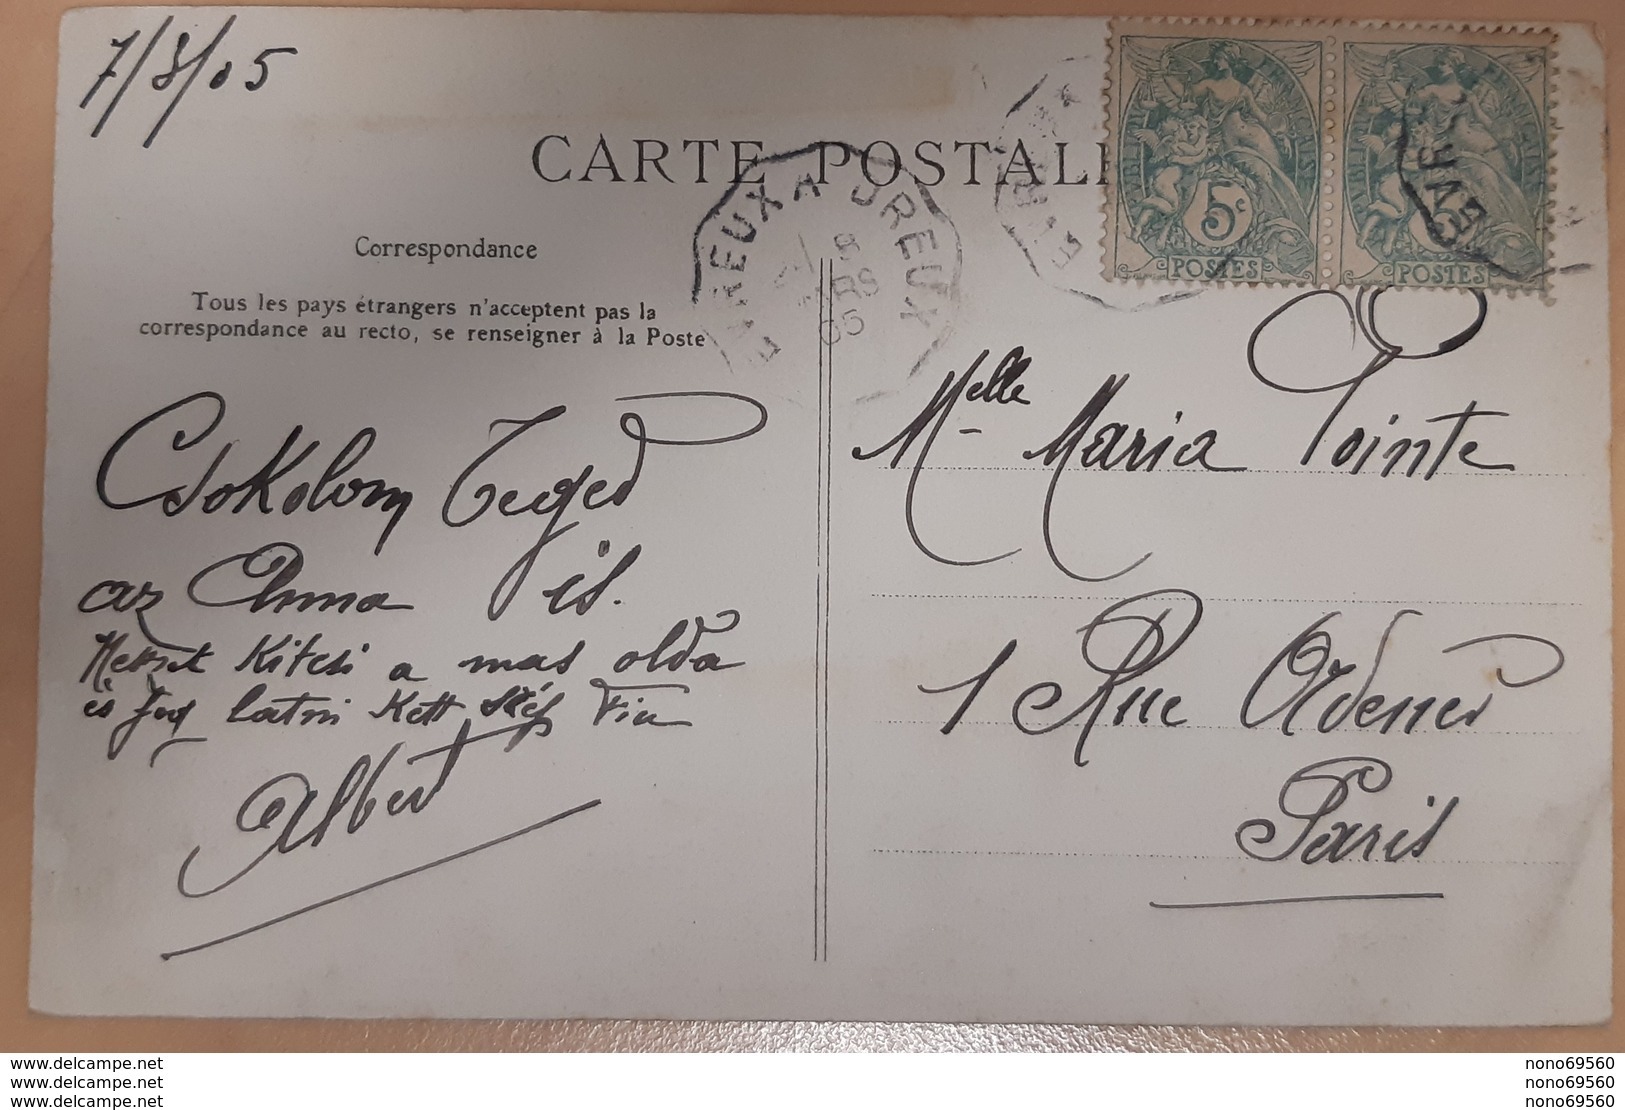 7/8/05
CARTE POSTALE
EVREUX A DREUX
8
05
5c
POSTES
POSTES
Correspondance
Tous les pays étrangers n'acceptent pas la
correspondance au recto, se renseigner à la Poste
Csokolom Teged
az Anna is.
kitcsi a mas olda
és fog latni Kett szép Fiu
Albert
Melle Maria Pointe
1 Rue Ordener
Paris
www.delcampe.net
www.delcampe.net
www.delcampe.net
nono69560
nono69560
nono69560